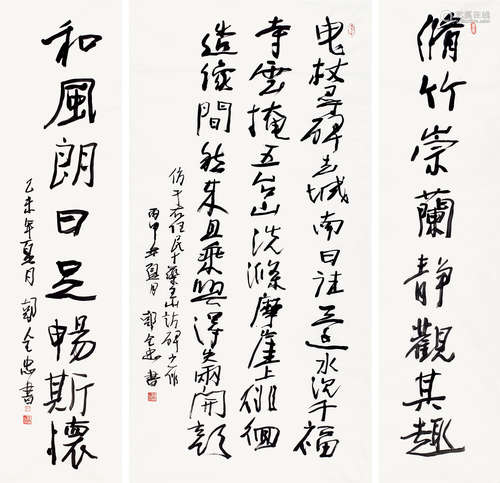 脩竹崇蘭静觀其趣
曳杖尋碑去城南日往還水沉千福
寺雲掩五台山洗滌摩崖上徘徊
造像間愁来且乘興得失兩開顏
仿于右任民十藥王山訪碑之作
丙申年夏月 郭全忠書
和風朗日足暢斯懷
乙未年夏月 郭全忠書